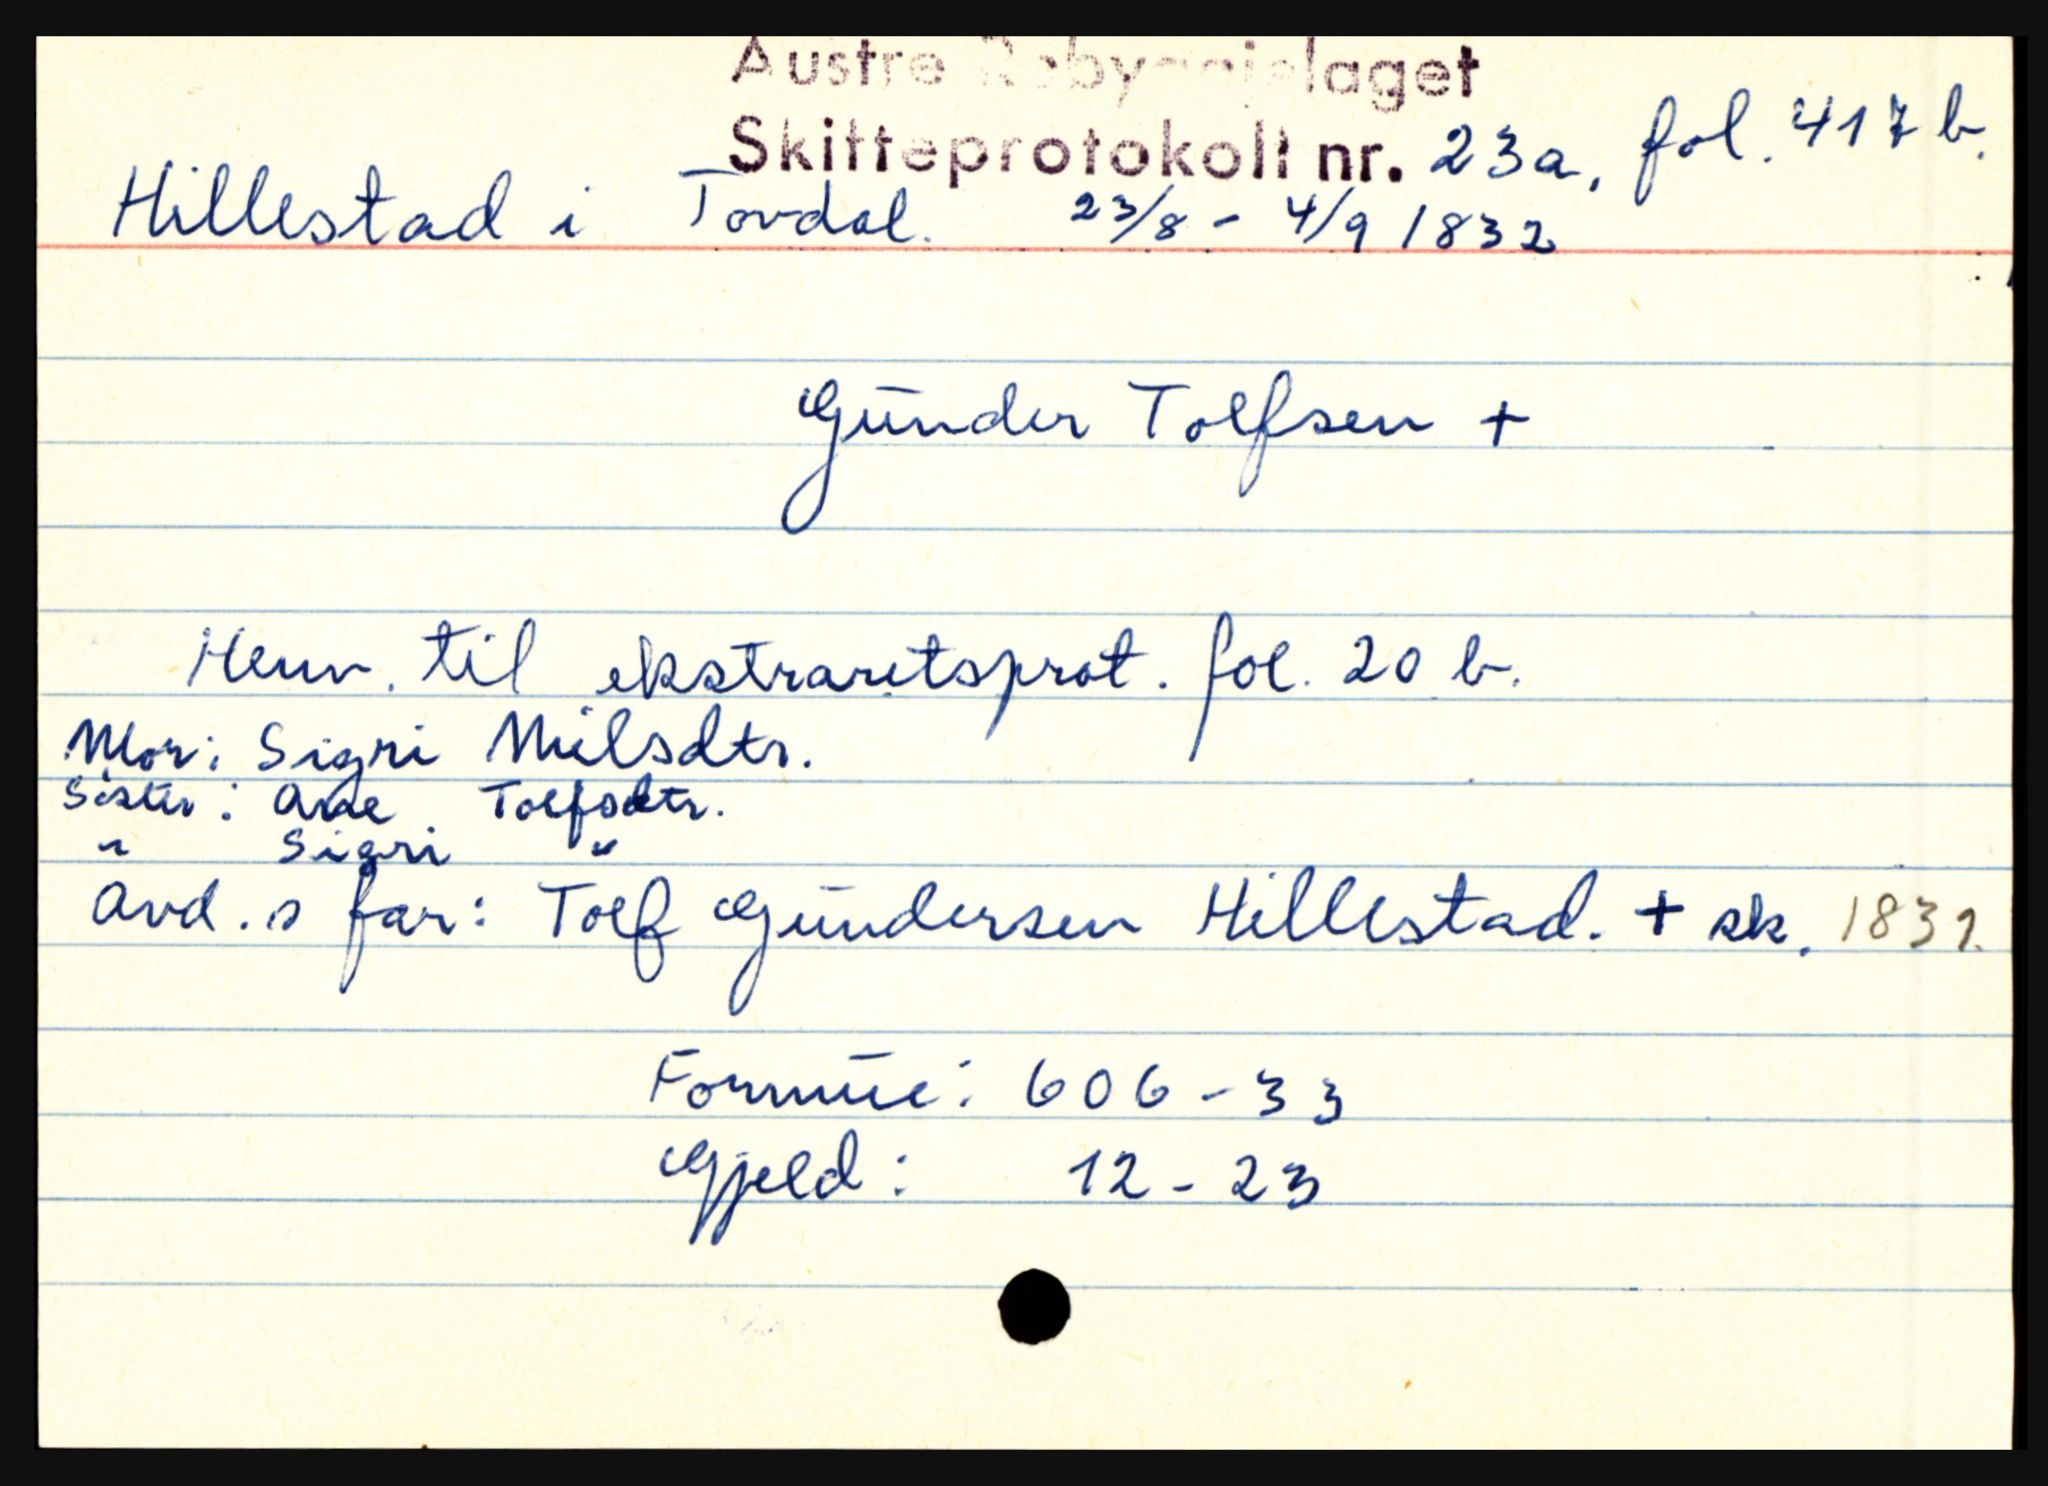 Austre Robyggjelaget
Skifteprotokoll nr. 23a, fol. 417 b.
Hillestad i Tovdal. 23/8 - 4/9 1832
Gunder Tolfsen +
Henv. til ekstraretsprot. fol. 20 b.
Mor: Sigri Nilsdtr.
Søster: Ase Tolfsdtr.
" Sigri "
Avd.s far: Tolf Gundersen Hillestad. + sk. 1831.
Formue: 606 - 33
Gjeld: 12 - 23